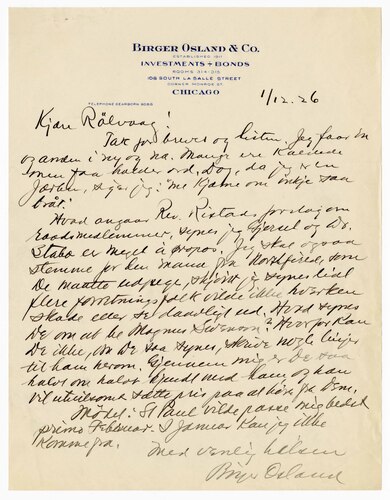 BIRGER OSLAND & CO.
ESTABLISHED 1911
INVESTMENTS - BONDS
ROOMS 314-315
108 SOUTH LA SALLE STREET
CORNER MONROE ST.
CHICAGO
TELEPHONE DEARBORN
1/12.26
Kjære Rölvaag!
Tak for brevet og listen. Jeg faar en
og anden i ny og na. Mange ere kaldede
men faa holder ord. Dog, da jeg er en
Jærbu, siger jeg: me kjæme om ikkje saa
bråt!
Hvad angaar Rev. Ristads forslag om
raadsmedlemmer, synes jeg Gjerset og Dr.
Stabo er meget à propos. Jeg skal ogsaa
stemme for den mand fra Northfield, som
De maatte udpege, skjønt jeg synes vel
flere forretningsfolk vilde ikke hverken
skade eller se daarligt ud. Hvad synes
De om at be Magnus Swenson? Hvorfor kan
De ikke, om De saa synes, skrive nogle linjer
til ham herom. Gjennem mig er De saa
halvt om halvt kjendt med ham og han
vil utvilsomt sætte pris paa at høre fra Dem.
Mödet i St Paul vilde passe mig bedst
primo Februar. I Januar kan jeg ikke
komme fra.
Med venlig hilsen
Birger Osland